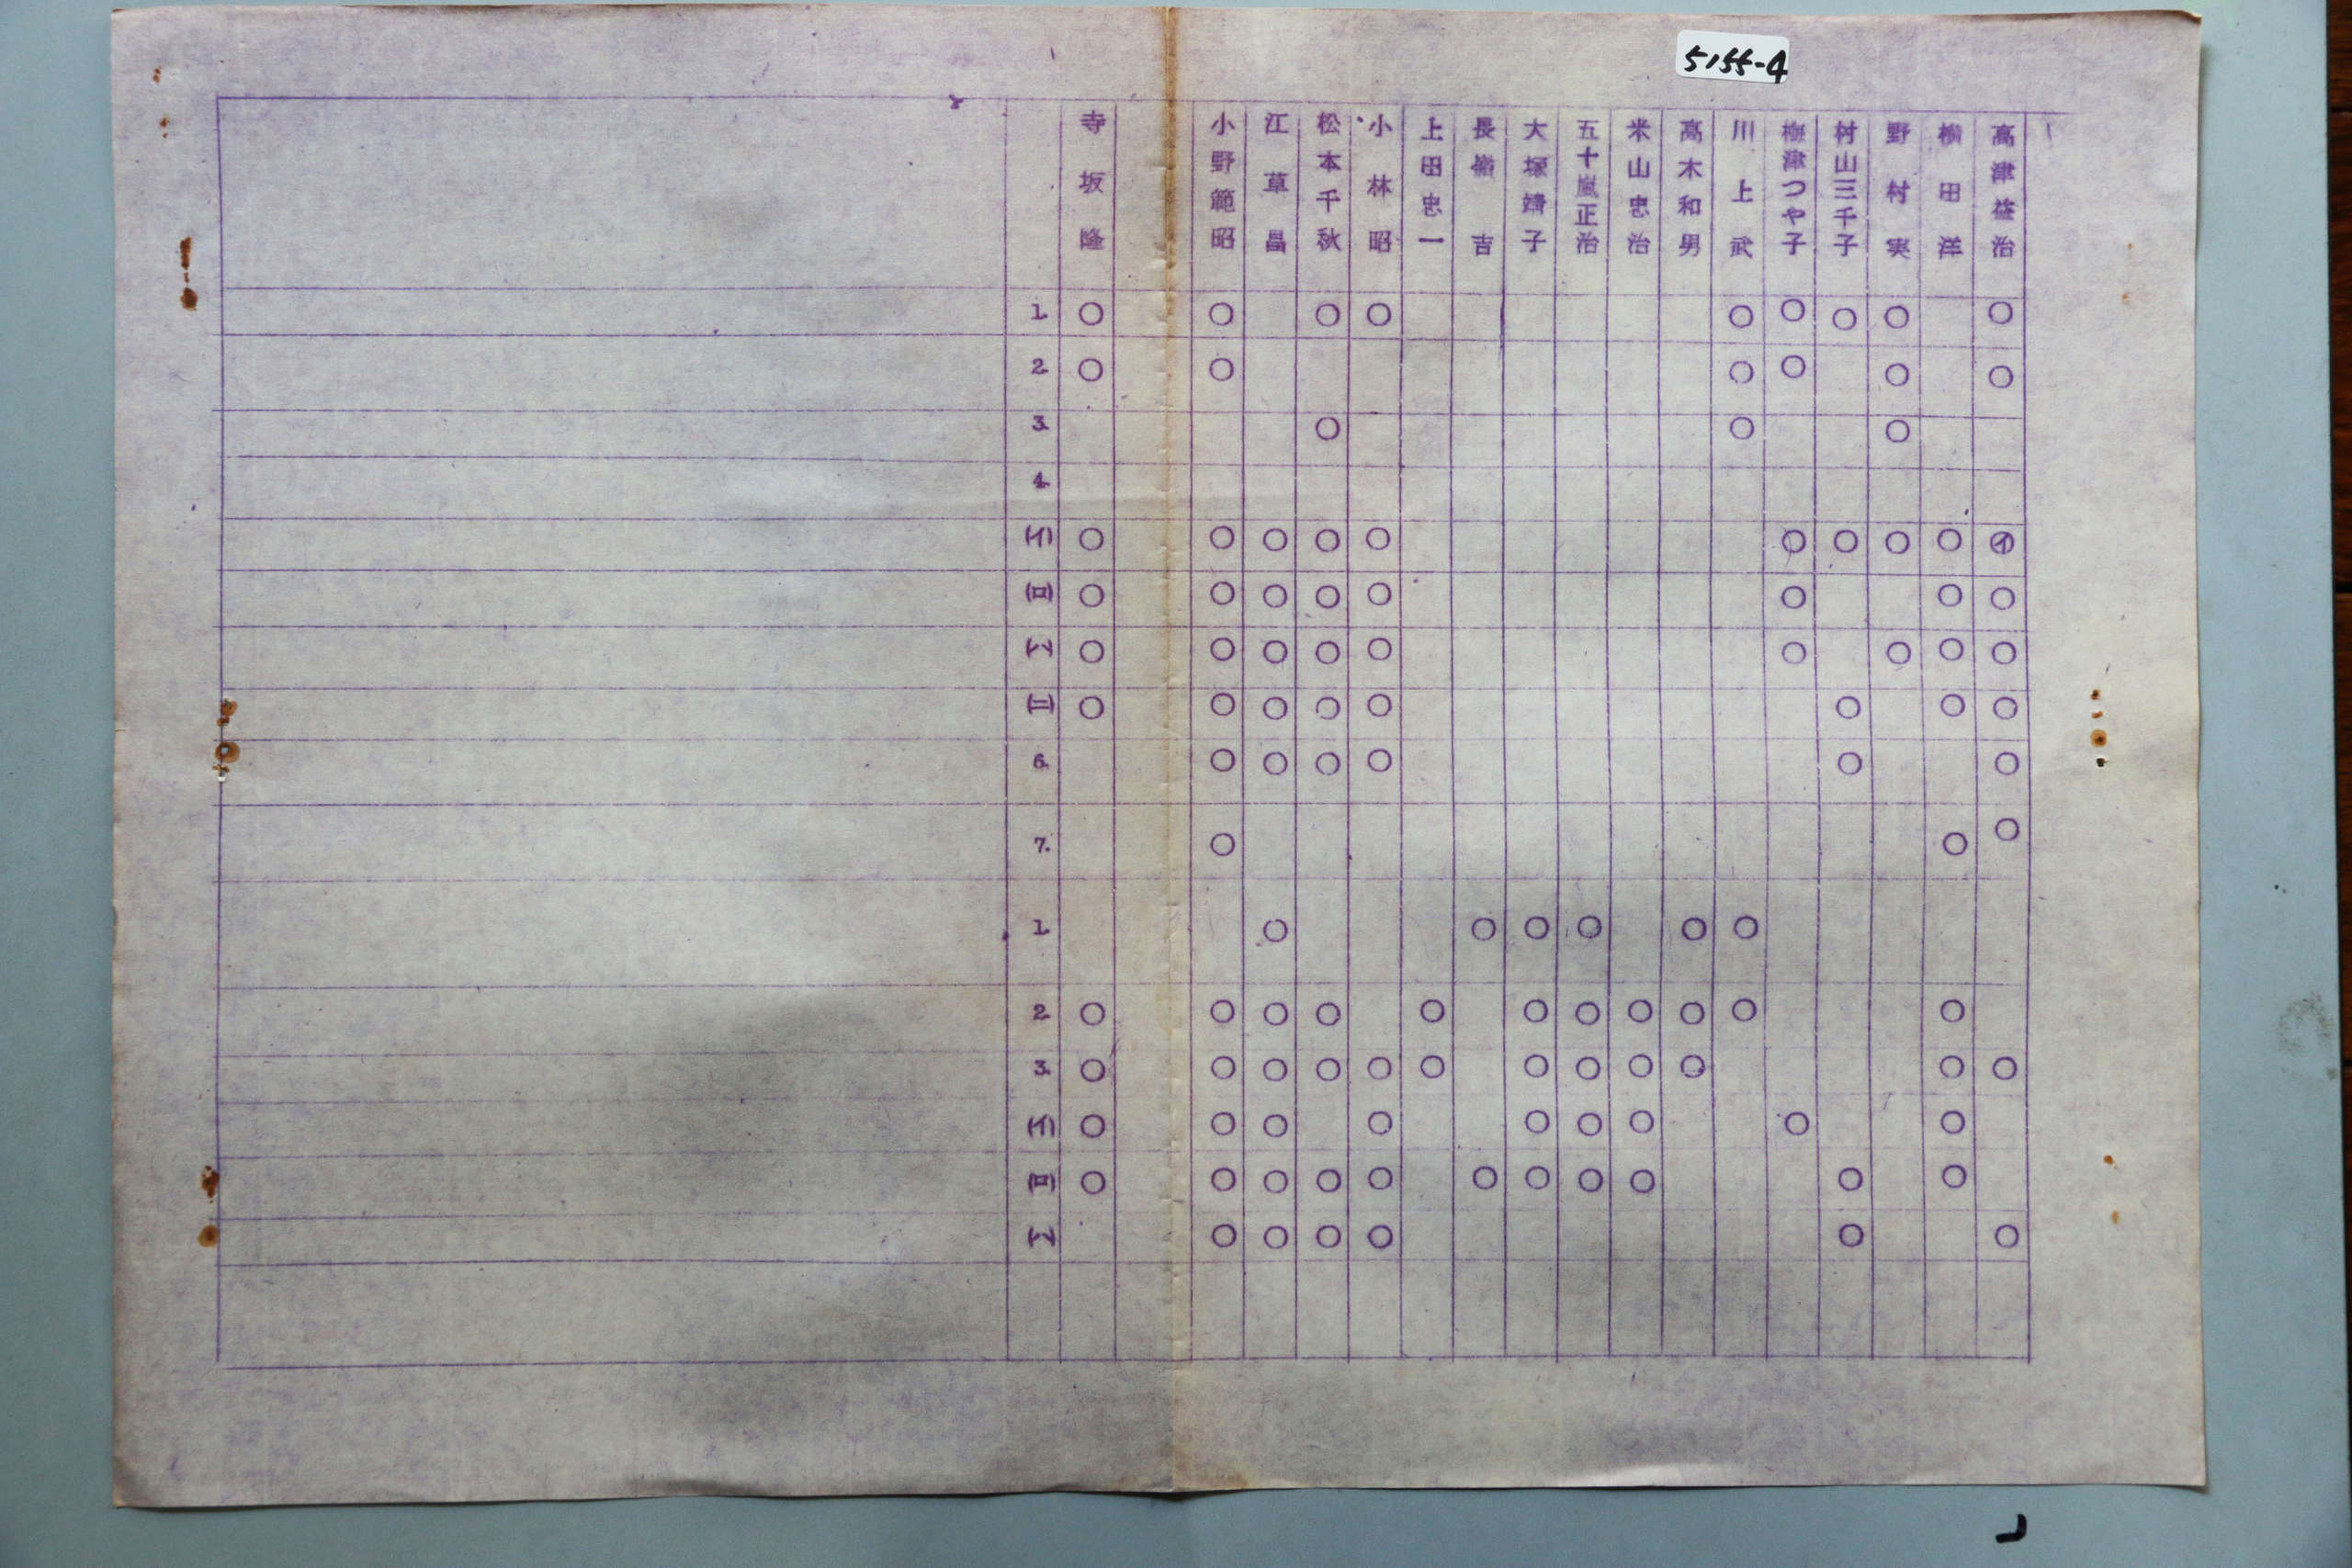 5155-4
高津益治
横田洋
野村実
村山三千子
津つや子
川上武
高木和男
米山忠治
五十嵐正治
大塚靖子
長嶺吉
上田忠一
小林昭
松本千秋
江草昌
小野範昭
寺坂隆
1.
2.
3.
4.
(イ)
(ロ)
(ハ)
(ニ)
6.
7.
1.
2.
3.
(イ)
(ロ)
(ハ)